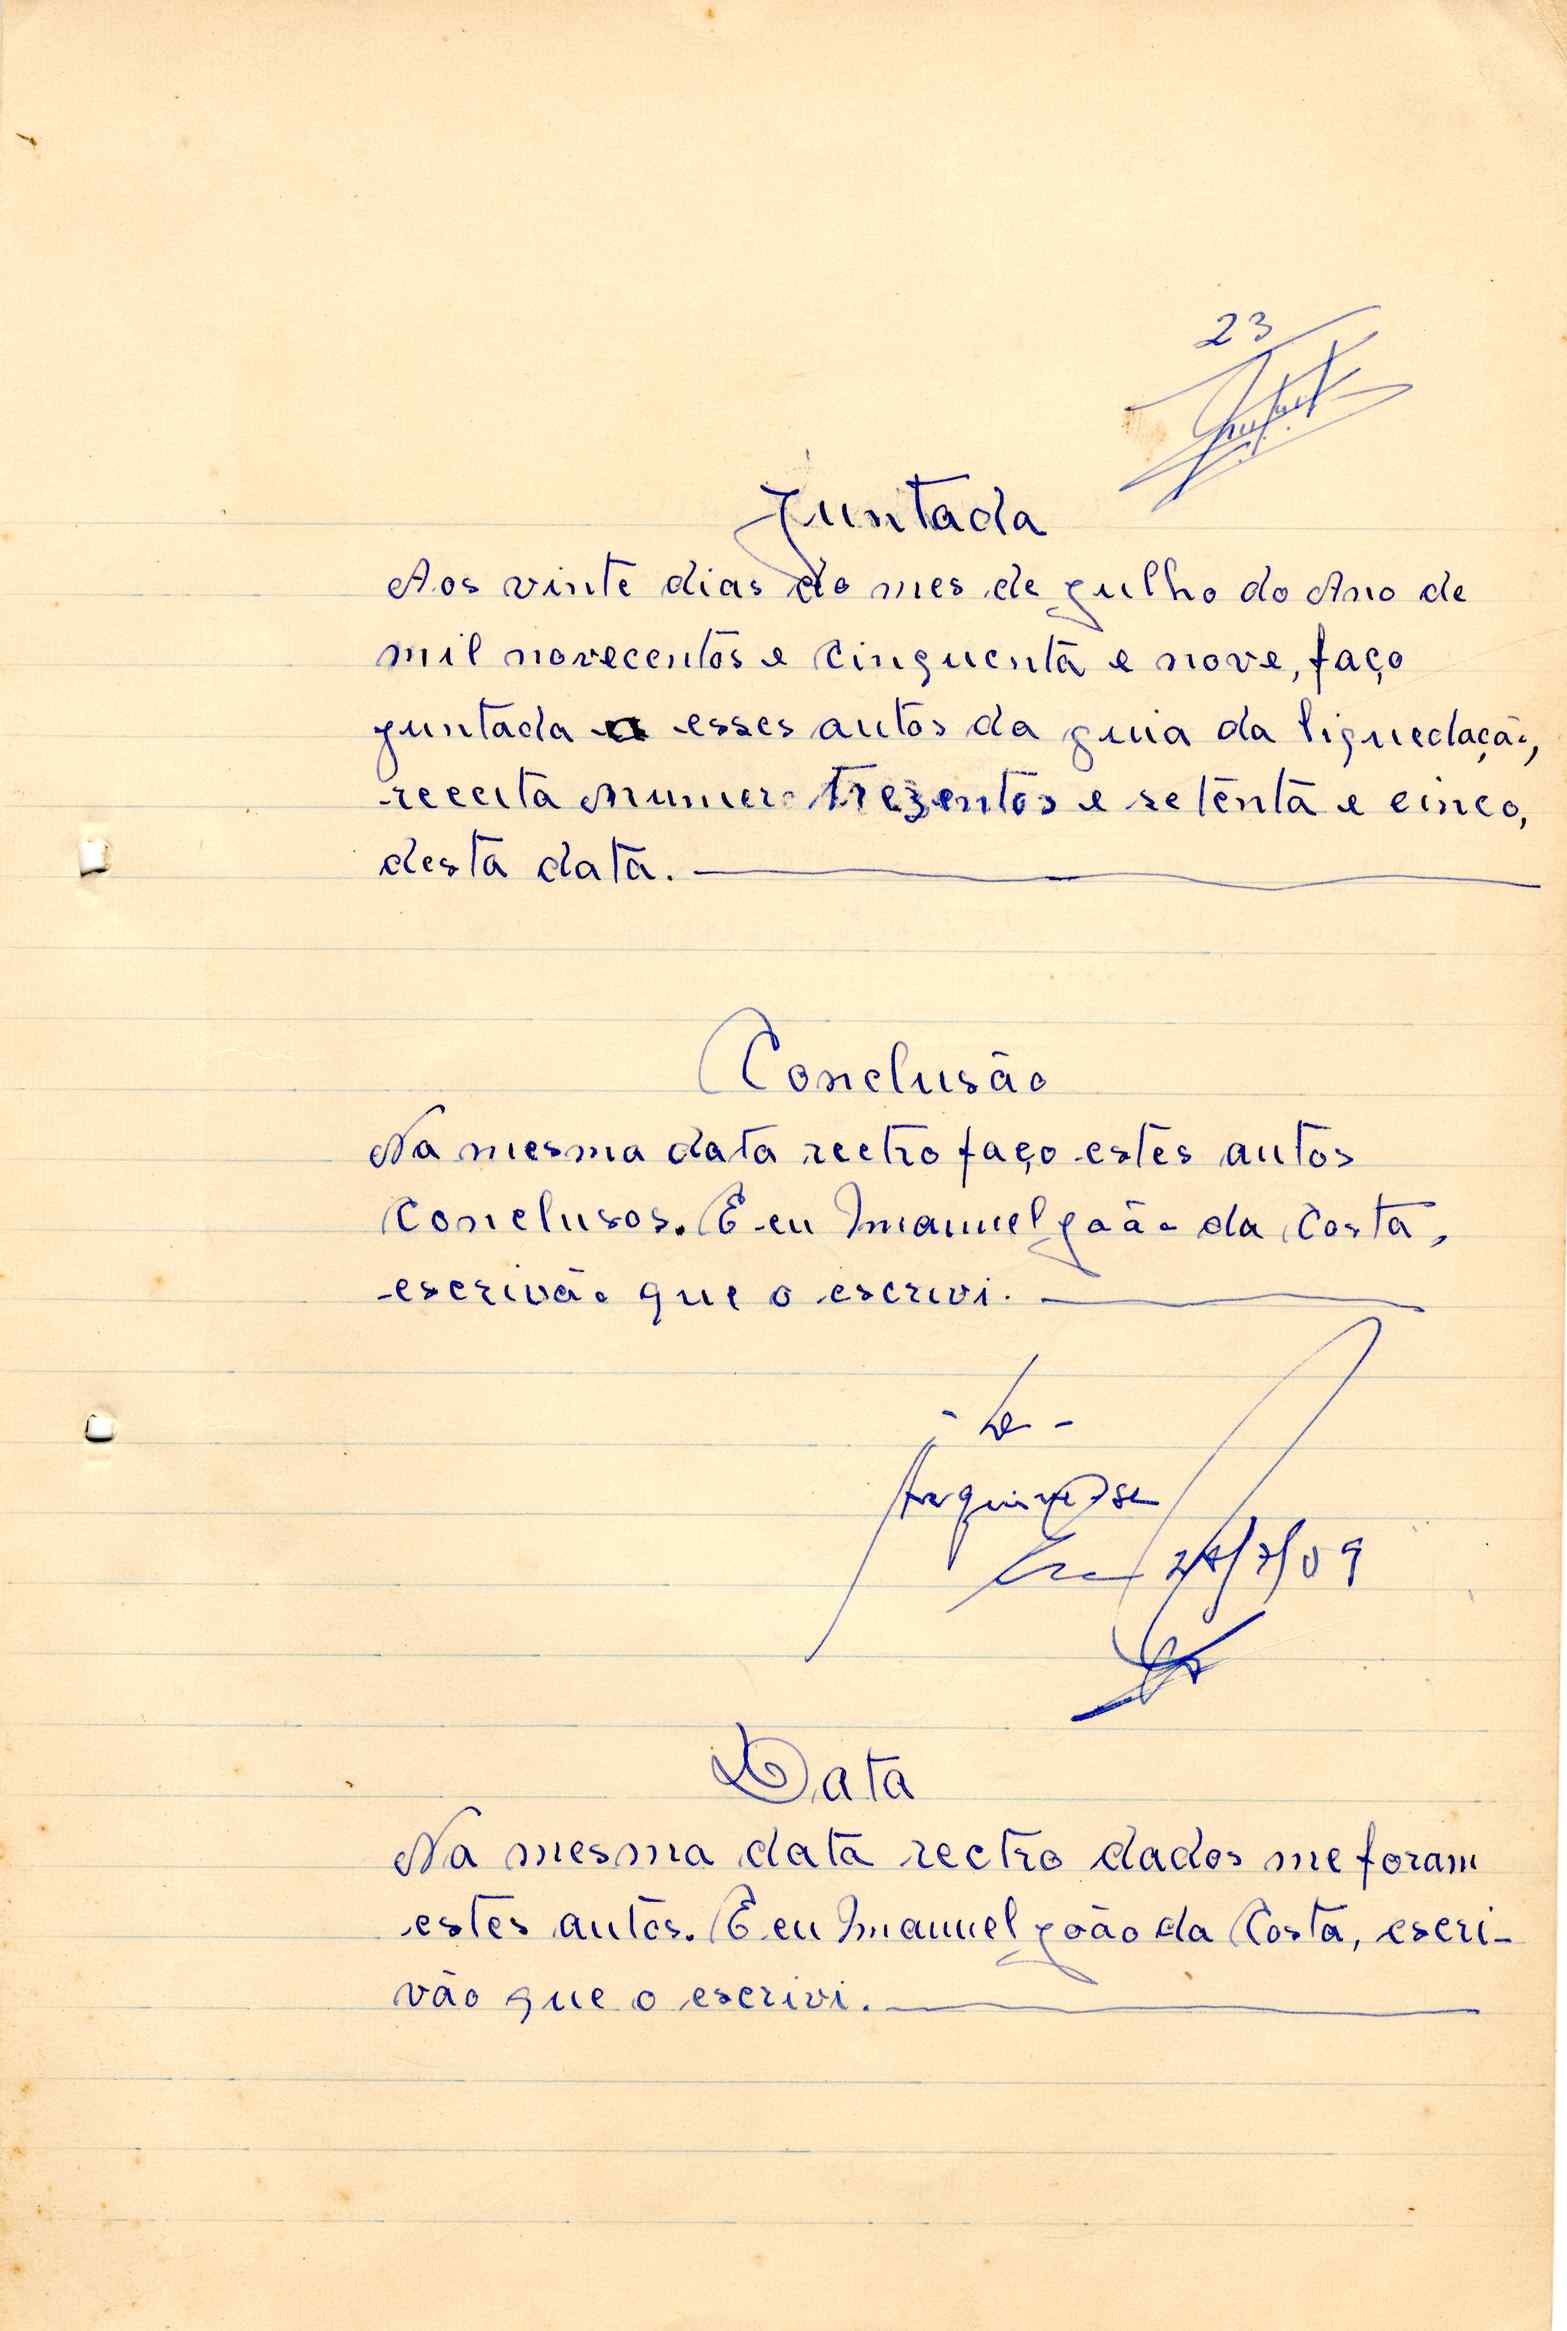 23
Juntada
Aos vinte dias do mes de julho do Ano de
mil novecentos e cinquenta e nove, faço
juntada a esses autos da guia da liquedação,
receita numero trezentos e setenta e cinco,
desta data.
Conclusão
Na mesma data rectro faço estes autos
Conclusos. E eu Imanuel João da Costa,
escrivão que o escrivi.
Arquive-se
Data
Na mesma data rectro dados me foram
estes autos. E eu Imanuel João da Costa, escri-
vão que o escrivi.